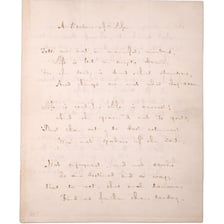 A Psalm of Life
Tell me not in mournful numbers,
Life is but an empty dream!
For the soul is dead that slumbers,
And things are not what they seem.
Life is real! Life is earnest!
And the grave is not its goal;
Dust thou art, to dust returnest,
Was not spoken of the soul.
Not enjoyment, and not sorrow,
Is our destined end or way;
But to act, that each tomorrow
Find us farther than today.